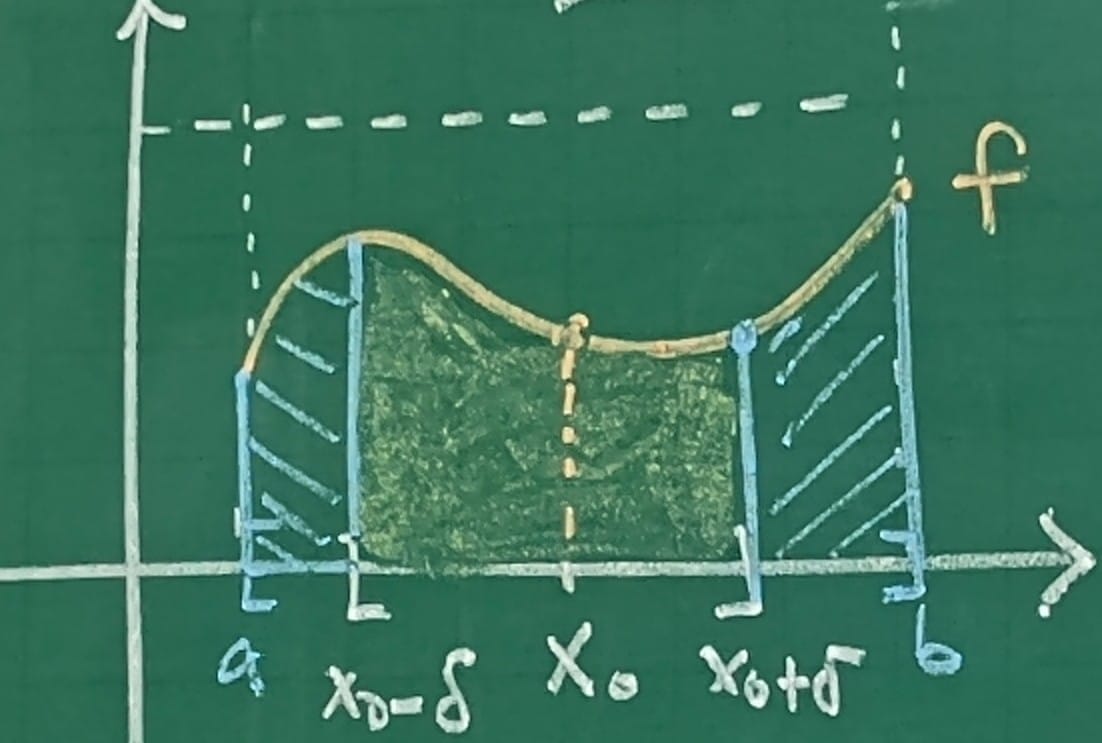 f
a x₀-δ x₀ x₀+δ b